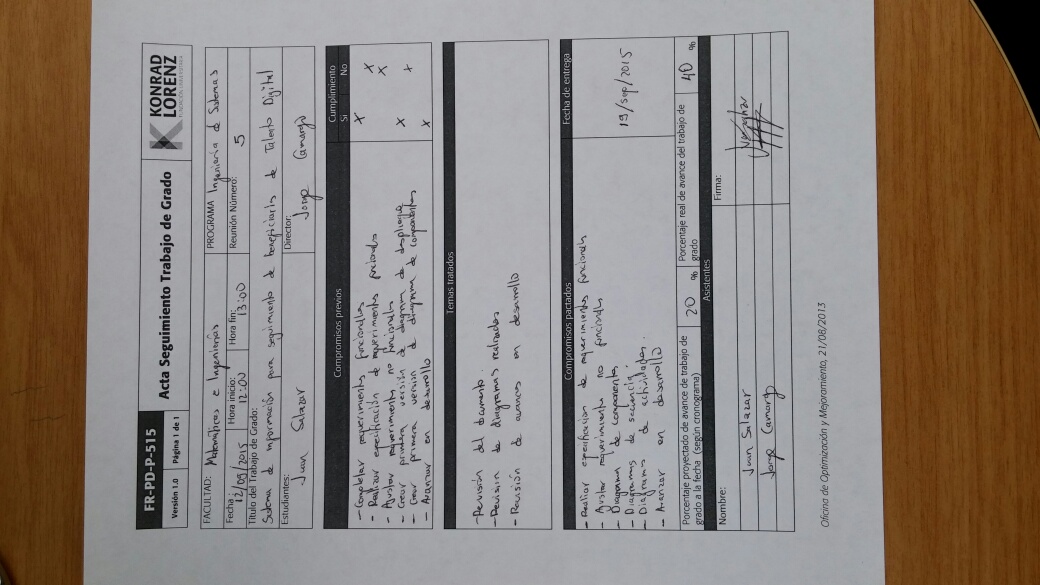 FR-PD-P-515
Versión 1.0 Página 1 de 1
Acta Seguimiento Trabajo de Grado
KONRAD
LORENZ
FUNDACIÓN UNIVERSITARIA
FACULTAD: Matemáticas e Ingenierías
PROGRAMA Ingeniería de Sistemas
Fecha: 12/09/2015
Hora inicio: 12:00
Hora fin: 13:00
Reunión Número: 5
Título del Trabajo de Grado:
Sistema de información para seguimiento de beneficiarios de Talento Digital
Estudiantes: Juan Salazar
Director: Jorge Camargo
Compromisos previos
Cumplimiento
Si No
- Completar requerimientos funcionales X
- Realizar especificación de requerimientos funcionales X
- Ajustar requerimientos no funcionales X
- Crear primera versión de diagrama de despliegue X
- Crear primera version de diagrama de componentes X
- Avanzar en desarrollo X
Temas tratados
- Revisión del documento.
- Revision de diagramas realizados
- Revisión de avances en desarrollo
Compromisos pactados
Fecha de entrega
- Realizar especificacion de requerimientos funcionales
- Ajustar requerimientos no funcionales
- Diagrama de componentes
- Diagramas de secuencia.
- Diagramas de actividades.
- Avanzar en desarrollo
19/sep/2015
Porcentaje proyectado de avance de trabajo de
grado a la fecha (según cronograma)
20 %
Porcentaje real de avance del trabajo de
grado
40 %
Asistentes
Nombre:
Firma:
Juan Salazar
Jorge Camargo
Oficina de Optimización y Mejoramiento, 21/08/2013